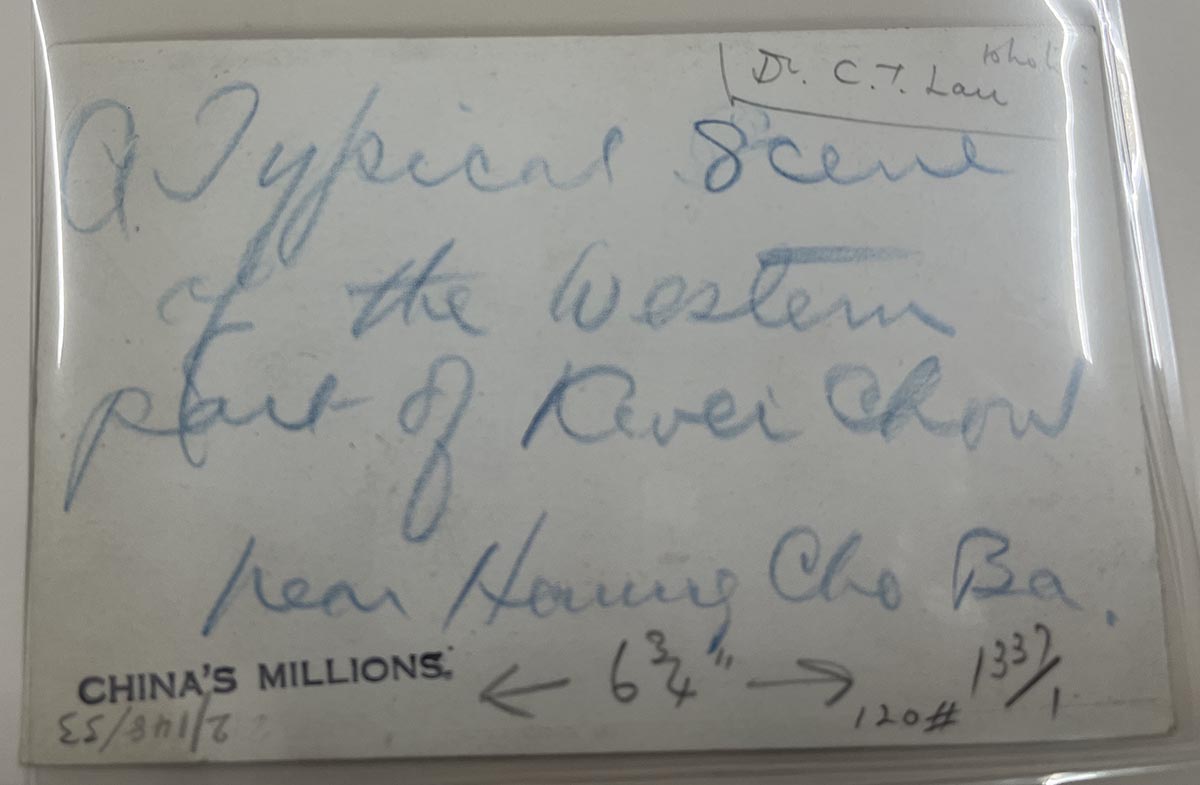 Dr. C.T. Lau
A Typical Scene
of the Western
part of Kwei Chow
near Hwang Cho Ba.
CHINA'S MILLIONS.
← 6 3/4" →
1337/1
120#